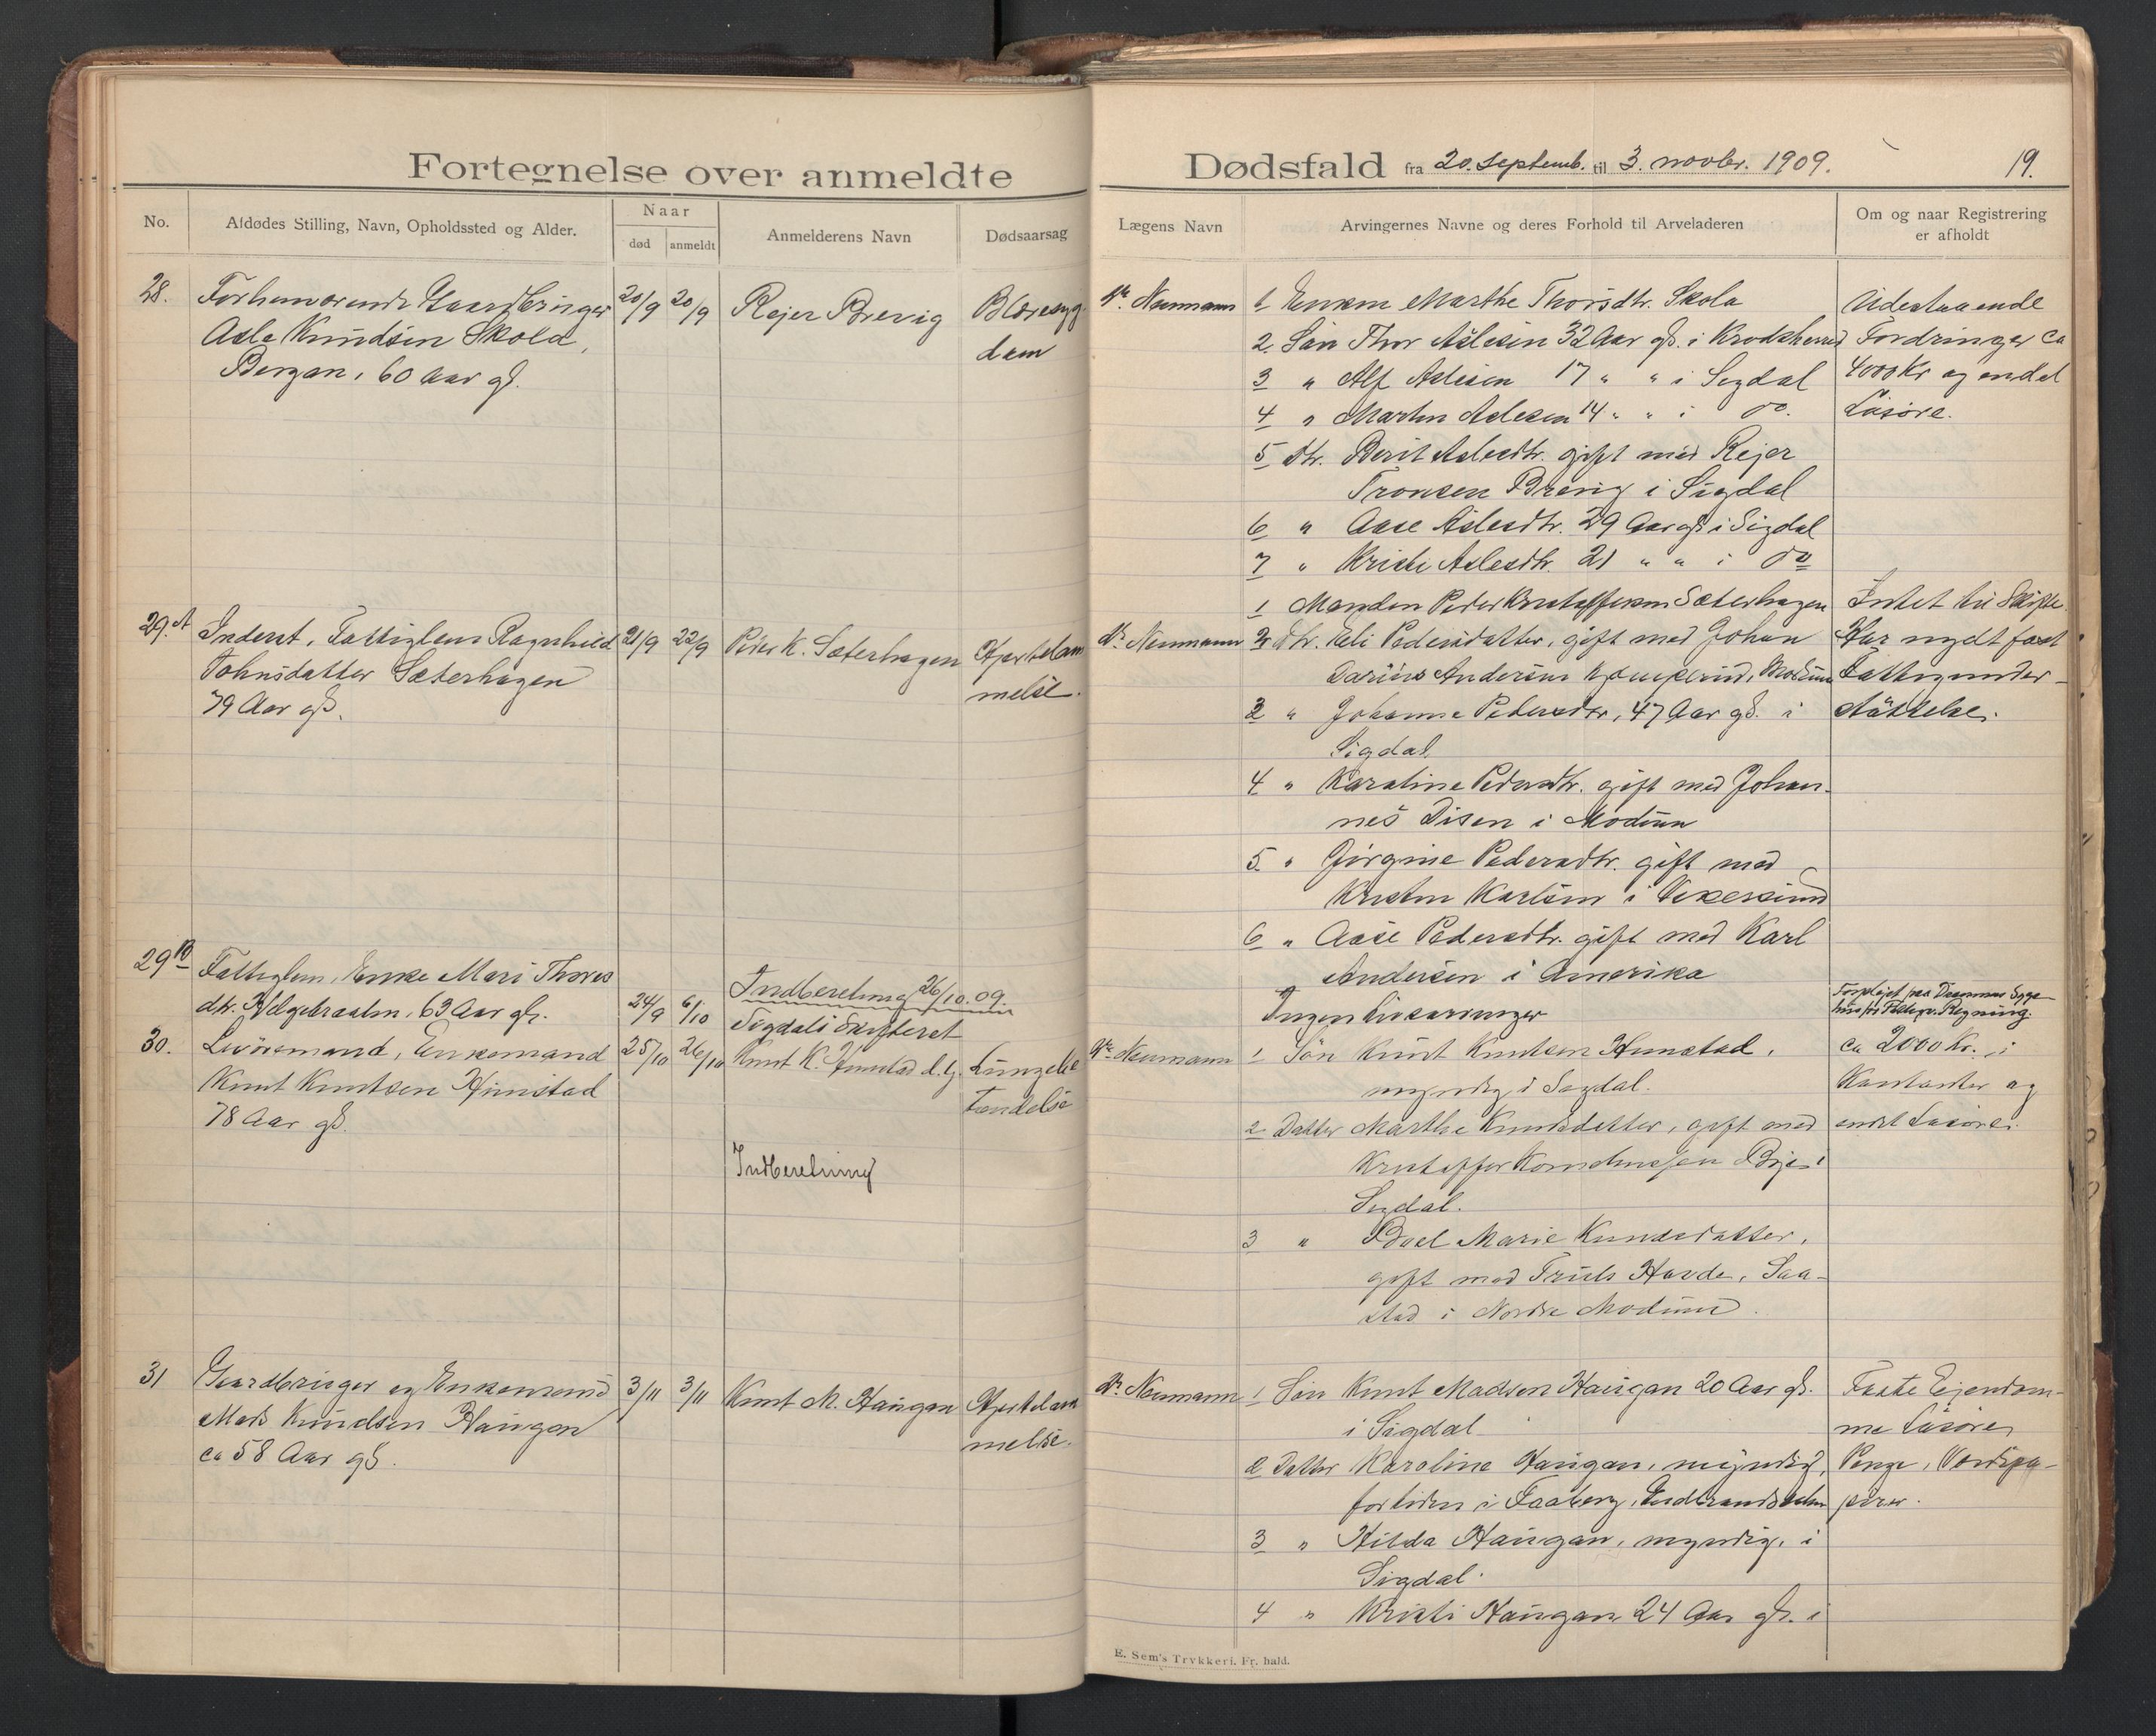 Fortegnelse over anmeldte
Dødsfald fra 20. septemb. til 3. novbr. 1909.
19.
No.
Afdødes Stilling, Navn, Opholdssted og Alder.
Naar
død
anmeldt
Anmelderens Navn
Dødsaarsag
Lægens Navn
Arvingernes Navne og deres Forhold til Arveladeren
Om og naar Registrering
er afholdt
28.
Forhenværende Gaardbruger
Asle Knudsen Skola,
Bergan, 60 Aar gl.
20/9
20/9
Rejer Brevig
Blæresyg
dom
Dr. Neumann
1 Enken Marthe Thorsdtr. Skola
2. Søn Thor Aslesen 32 Aar gl. i Krødsherred
3 " Alf Aslesen 17 " " i Sigdal
4 " Martin Aslesen 14 " " i do.
5 Dtr. Berit Aslesdtr. gift med Rejer
Tronsen Brevig i Sigdal
6 " Aase Aslesdtr. 29 Aar gl i Sigdal
7 " Kristi Aslesdtr. 21 " " i do
Udestaaende
Fordringer ca
4000 Kr og endel
Løsøre.
29. A
Inderst, Fattiglem Ragnhild
Johnsdatter Sæterhagen
79 Aar gl.
21/9
22/9
Peder K. Sæterhagen
Hjertelam
melse.
Dr. Neumann
1 Manden Peder Kristoffersen Sæterhagen
2 Dtr. Eli Pedersdatter, gift med Johan
Darius Andersen Kjemperud, Modum
3 " Johanne Pedersdtr, 47 Aar gl. i
Sigdal
4 " Karoline Pedersdtr. gift med Johan-
nes Disen i Modum
5. " Jørgine Pedersdtr. gift med
Kristen Karlsen i Vikersund
6 " Aase Pedersdtr. gift med Karl
Andersen i Amerika
Intet til Skifte.
Har nydt fast
Fattigunder-
støttelse.
29 B
Fattiglem, Enke Mari Thores
dtr. Helgebraaten, 63 Aar gl.
24/9
6/10
Indberetning 26/10.09.
Sigdals Skifteret
Ingen Livsarvinger
Forpleiet paa Drammens Syge-
hus for Fattigv. Regning.
30.
Livøremand, Enkemand
Knut Knutsen Hunstad
78 Aar gl.
25/10
26/10
Knut K. Hunstad d.y.
Lungebe
tændelse
Indberetning
Dr. Neumann
1 Søn Knut Knutsen Hunstad,
myndig i Sigdal.
2 Datter Marthe Knutsdatter, gift med
Kristoffer Kornelinssen i
Sigdal.
3 " Marie Knutsdatter,
gift med Truls Hovde, Saa-
stad i Nordre Modum.
ca 2000 Kr. i
Kontanter og
endel Løsøre.
31
Gaardbruger og Enkemand
Mads Knudsen Haugan
ca 58 Aar gl.
3/11
3/11
Knut M. Haugan
Hjertelam
melse.
Dr. Neumann
1 Søn Knut Madsen Haugan 20 Aar gl.
i Sigdal
2 Datter Karoline Haugan, myndig,
fortiden i Faaberg, Gudbrandsdalen
3 " Hilda Haugan, myndig, i
Sigdal.
4 " Kristi Haugan, 24 Aar gl. i
Faste Eiendom-
me Løsøre,
Penge, Værdipa-
pirer.
E. Sem's Trykkeri. Fr. hald.